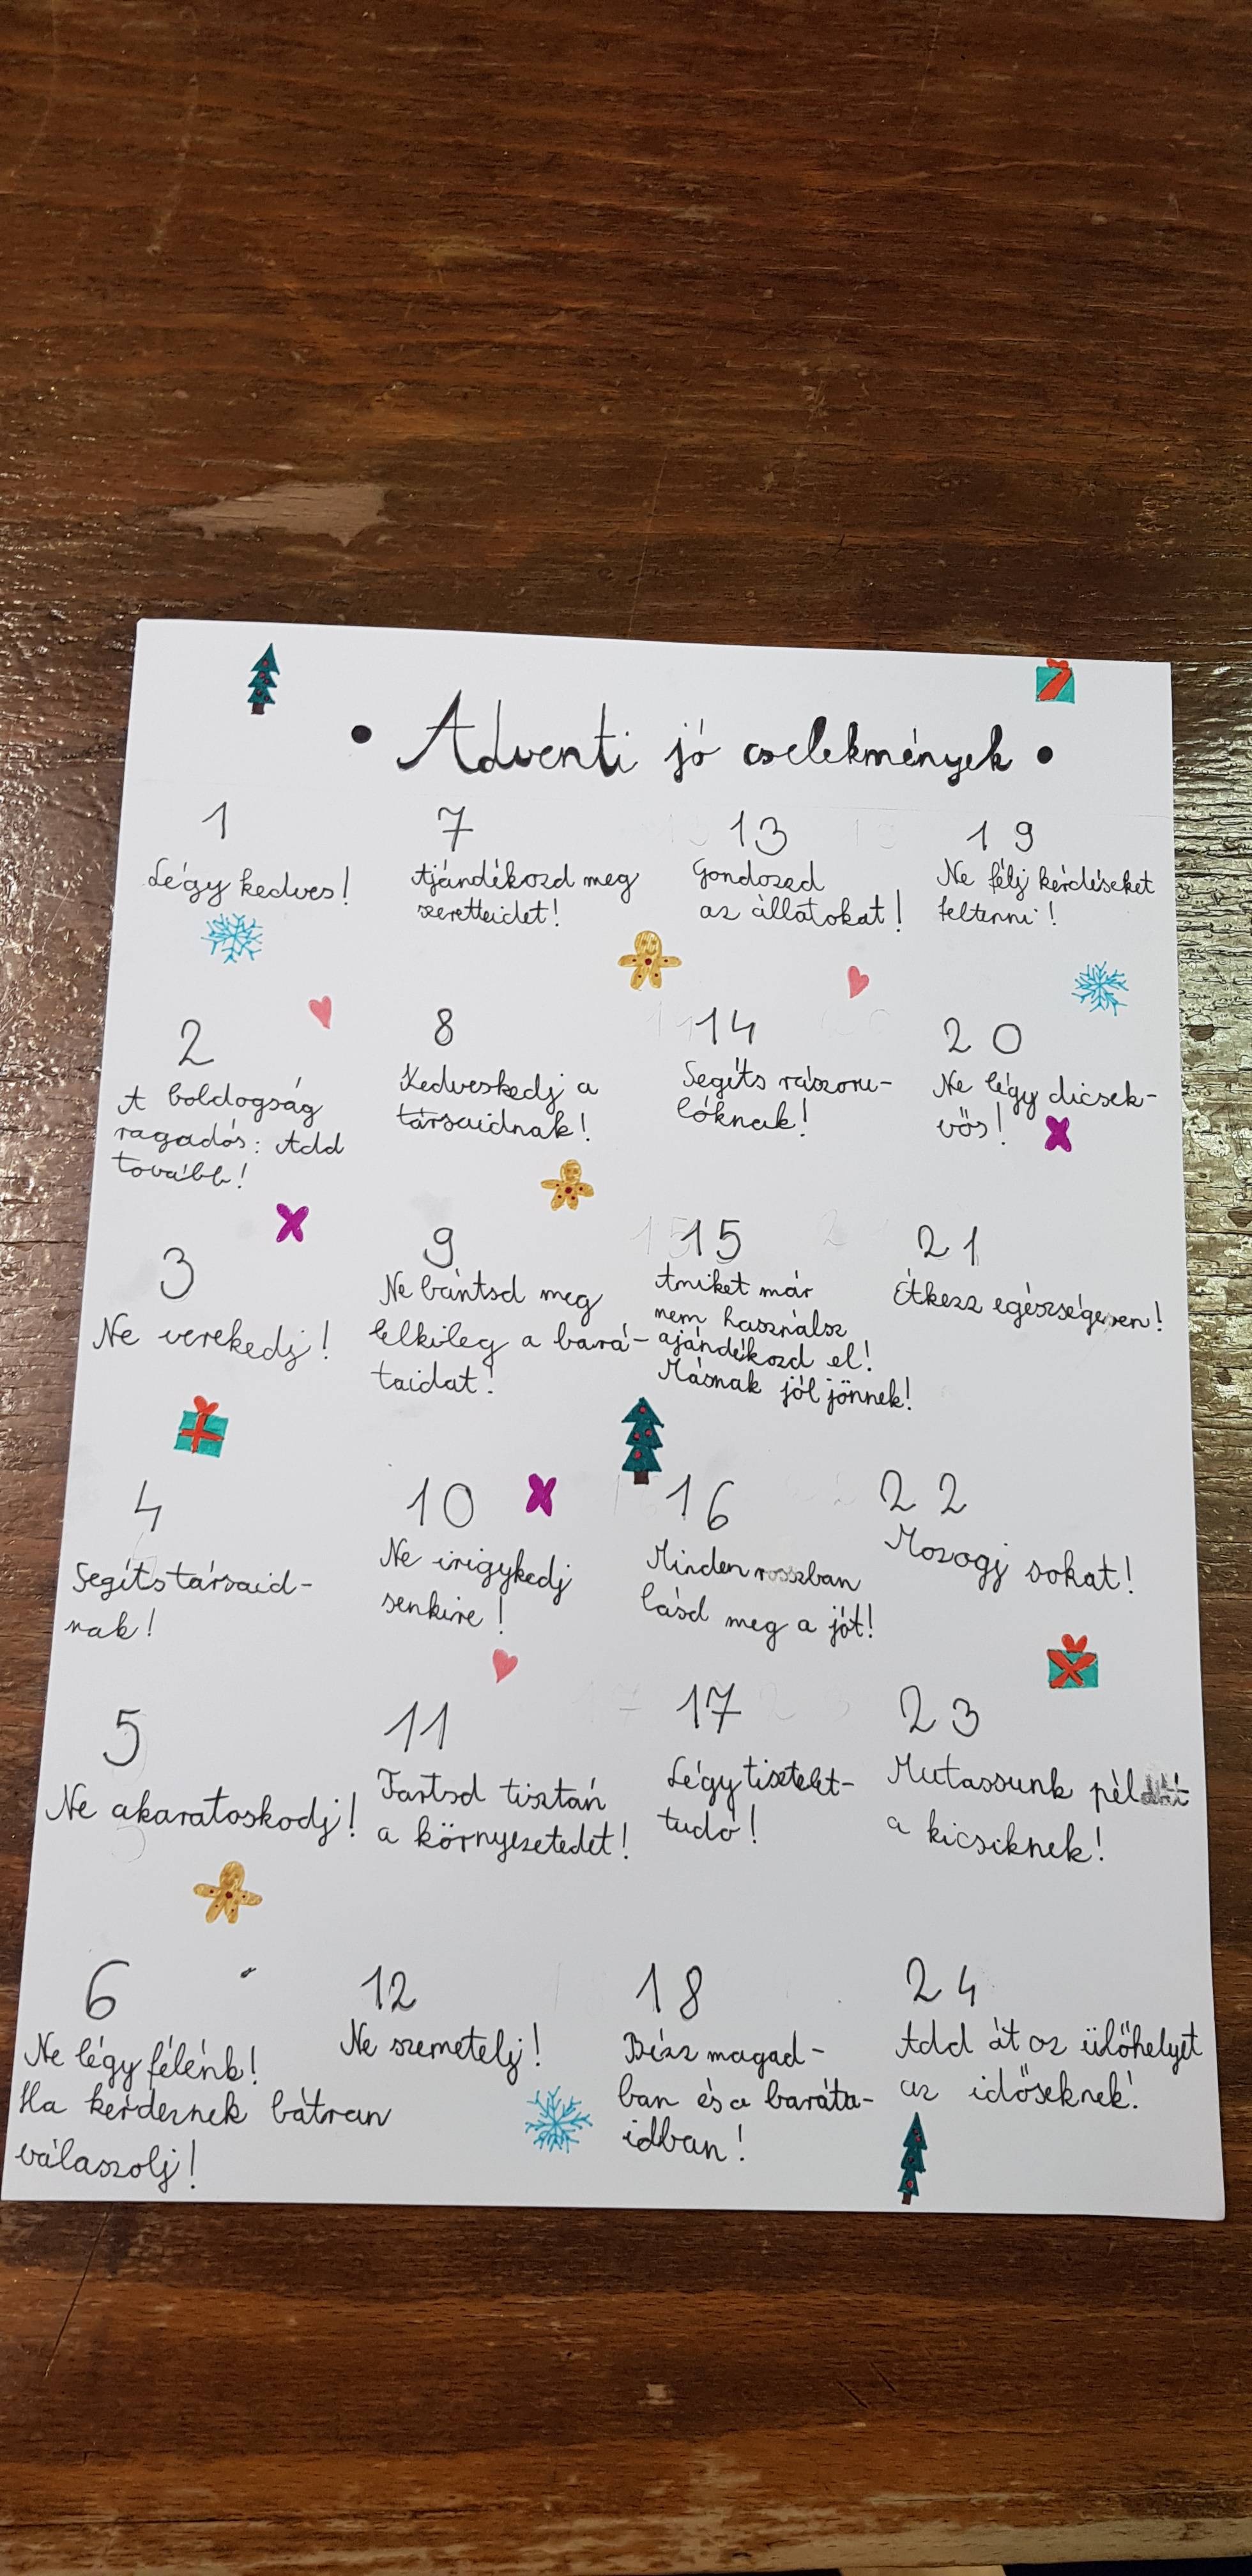 • Adventi jó cselekmények •
1
Légy kedves!
2
A boldogság
ragadós: Add
tovább!
3
Ne verekedj!
4
Segíts társaid-
nak!
5
Ne akaratoskodj!
6
Ne légy félénk!
Ha kérdeznek bátran
válaszolj!
7
Ajándékozd meg
szeretteidet!
8
Kedveskedj a
társaidnak!
9
Ne bántsd meg
lelkileg a bará-
taidat!
10
Ne irigykedj
senkire!
11
Tartsd tisztán
a környezetedet!
12
Ne szemetelj!
13
Gondozad
az állatokat!
14
Segíts rászoru-
lóknak!
15
Amiket már
nem használsz
ajándékozd el!
Másnak jól jönnek!
16
Minden rosszban
lásd meg a jót!
17
Légy tisztelet-
tudó!
18
Bízz magad-
ban és a baráta-
idban!
19
Ne félj kérdéseket
feltenni!
20
Ne légy dicsek-
vős!
21
Étkezz egészségesen!
22
Mozogj sokat!
23
Mutassunk példát
a kicsiknek!
24
Add át az ülőhelyet
az időseknek!